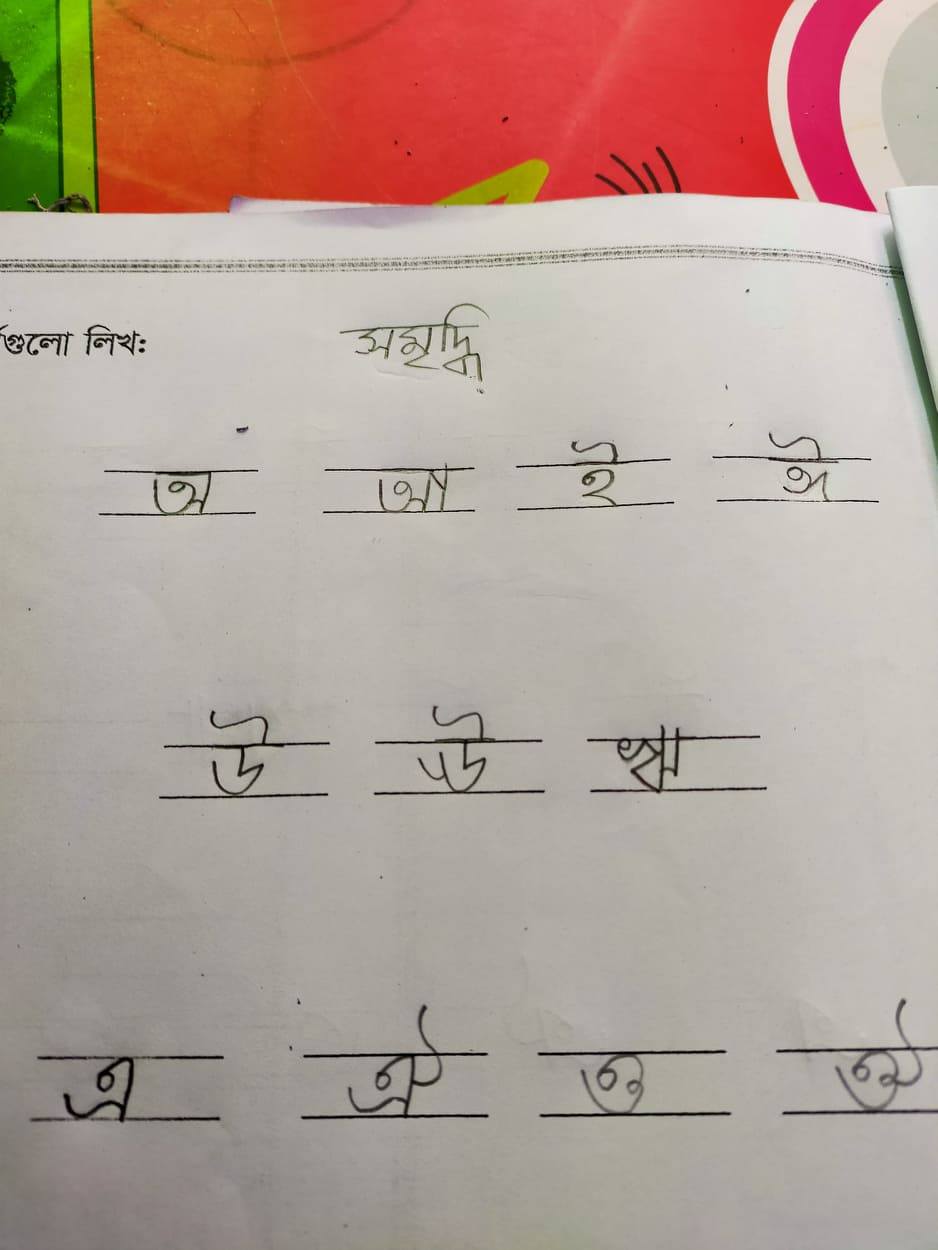 গুলো লিখ: সমৃদ্ধি
অ আ ই ঈ
উ ঊ ঋ
এ ঐ ও ঔ